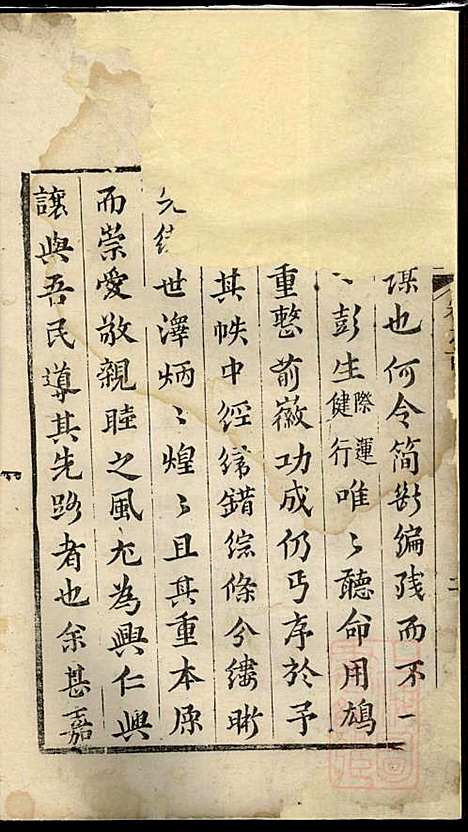 謀也何令简斷编残而不一
彭生際運健行唯〻聽命用鳩
重憗前徽功成仍丐序於予
其帙中經緯錯綜條分縷晰
世澤炳〻煌〻且其重本源
而崇愛敬親睦之風尤為興仁興
讓與吾民導其先路者也余甚嘉